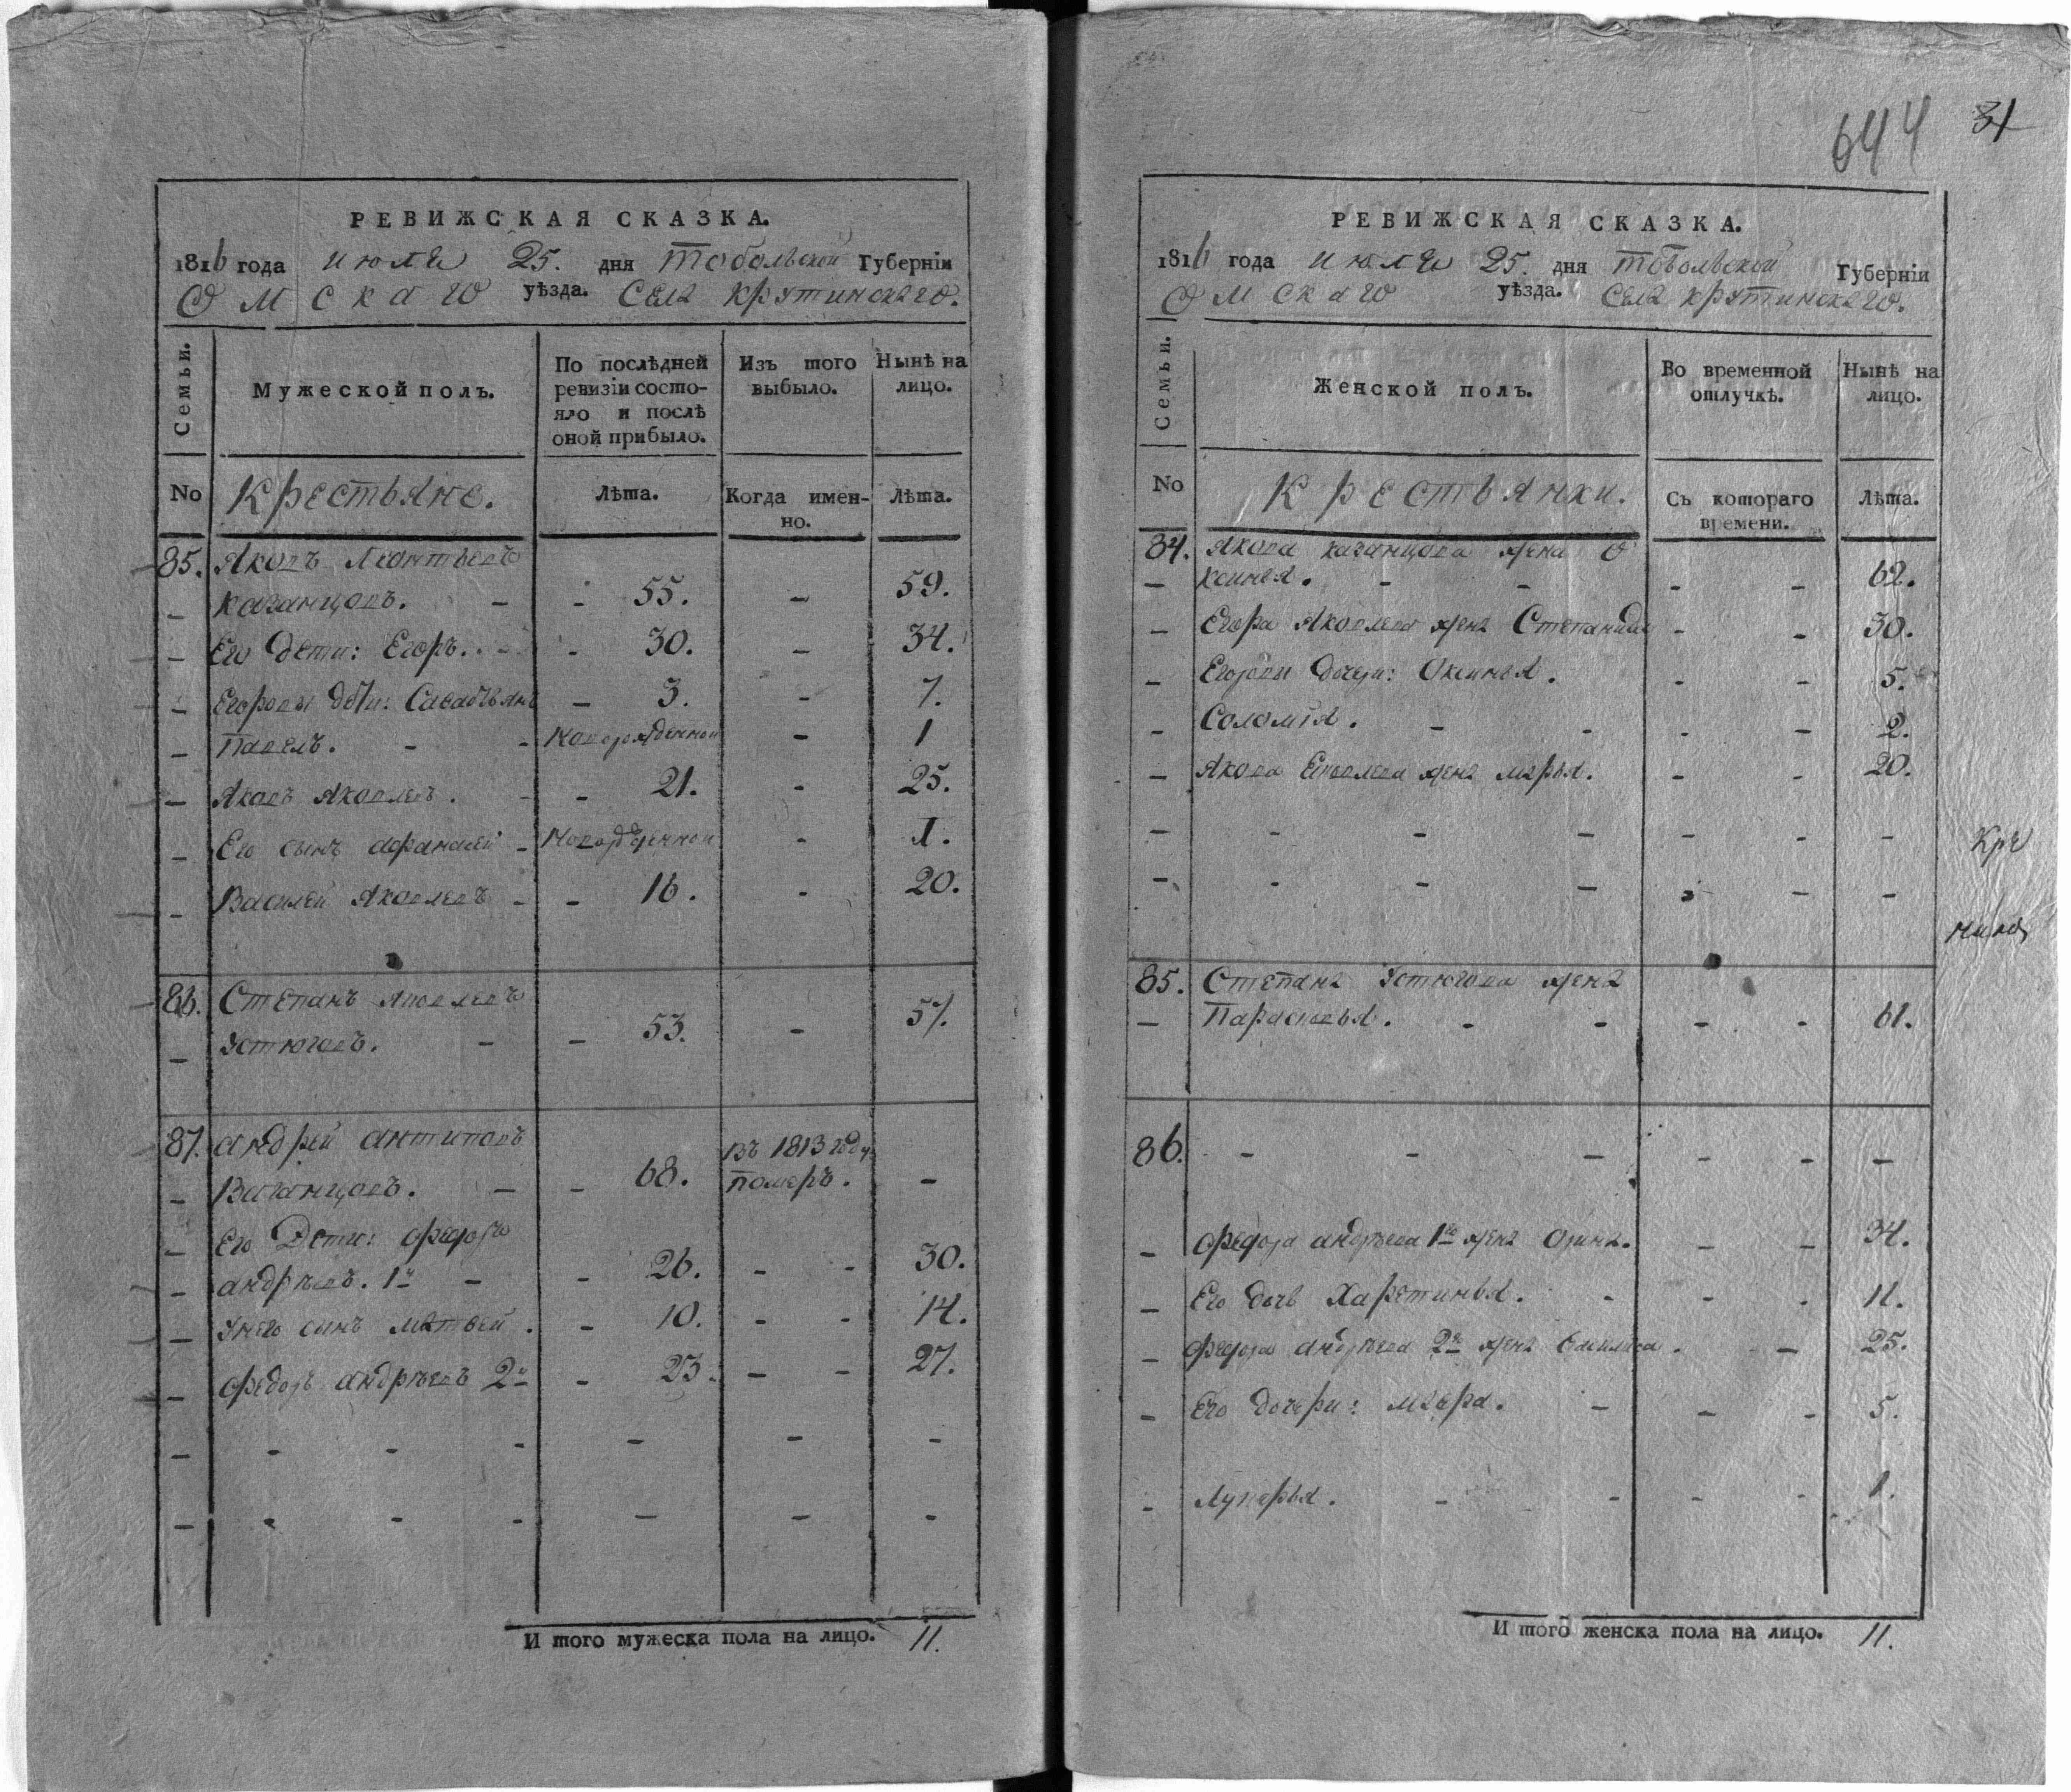 РЕВИЖСКАЯ СКАЗКА.
1816 года июля 25. дня Тобольской Губерніи
Омскаго уѣзда. Села Крутинскаго.
Семьи.
Мужеской полъ.
По послѣдней ревизіи состояло и послѣ оной прибыло.
Изъ того выбыло.
Нынѣ на лицо.
No
Крестьяне.
Лѣта.
Когда именно.
Лѣта.
85. Яковъ Леонтьевъ
Казанцовъ. 55. 59.
Его дети: Егоръ. 30. 34.
Егоровы дѣти: Савастьянъ 3. 7.
Павелъ. новорожденной 1
Яковъ Яковлевъ. 21. 25.
Его сынъ Афанасей новорожденной 1.
Василей Яковлевъ 16. 20.
86. Степанъ Яковлевъ
Устюговъ. 53. 57.
87. Андрей Антиповъ въ 1813 году
Казанцовъ. 68. померъ.
Его Дети: Федоръ
Андрѣевъ. 1й 26. 30.
У него сынъ Матвей. 10. 14.
Федоръ Андрѣевъ 2й 23. 27.
И того мужеска пола на лицо. 11.
644 31
РЕВИЖСКАЯ СКАЗКА.
1816 года июля 25. дня Тобольской Губерніи
Омскаго уѣзда. Села Крутинскаго.
Семьи.
Женской полъ.
Во временной отлучкѣ.
Нынѣ на лицо.
No
Крестьянки.
Съ котораго времени.
Лѣта.
84. Якова Казанцова жена О
ксинья. 62.
Егора Яковлева жена Степанида 30.
Егоровы дочери: Оксинья. 5.
Соломія. 2.
Якова Яковлева жена Марья. 20.
Кре
85. Степана Устюгова жена
Парасковья. 61.
86.
Федора Андрѣева 1го жена Орина. 34.
Его дочь Харетинья. 11.
Федора Андрѣева 2го жена Василиса. 25.
Его дочери: Мавра. 5.
Лукерья. 1.
И того женска пола на лицо. 11.